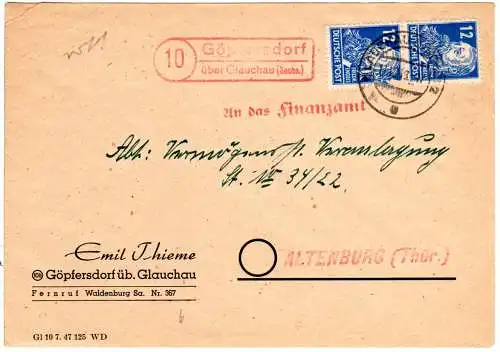 10
Göpfersdorf
über Glauchau (Sachs.)
12 DEUTSCHE POST
12 DEUTSCHE POST
An das Finanzamt
Abt: Vermögensst. Veranlagung
St. No 34/22
Emil Thieme
Göpfersdorf üb. Glauchau
Fernruf Waldenburg Sa. Nr. 367
ALTENBURG (Thür.)
Gl 10 7. 47 125 WD